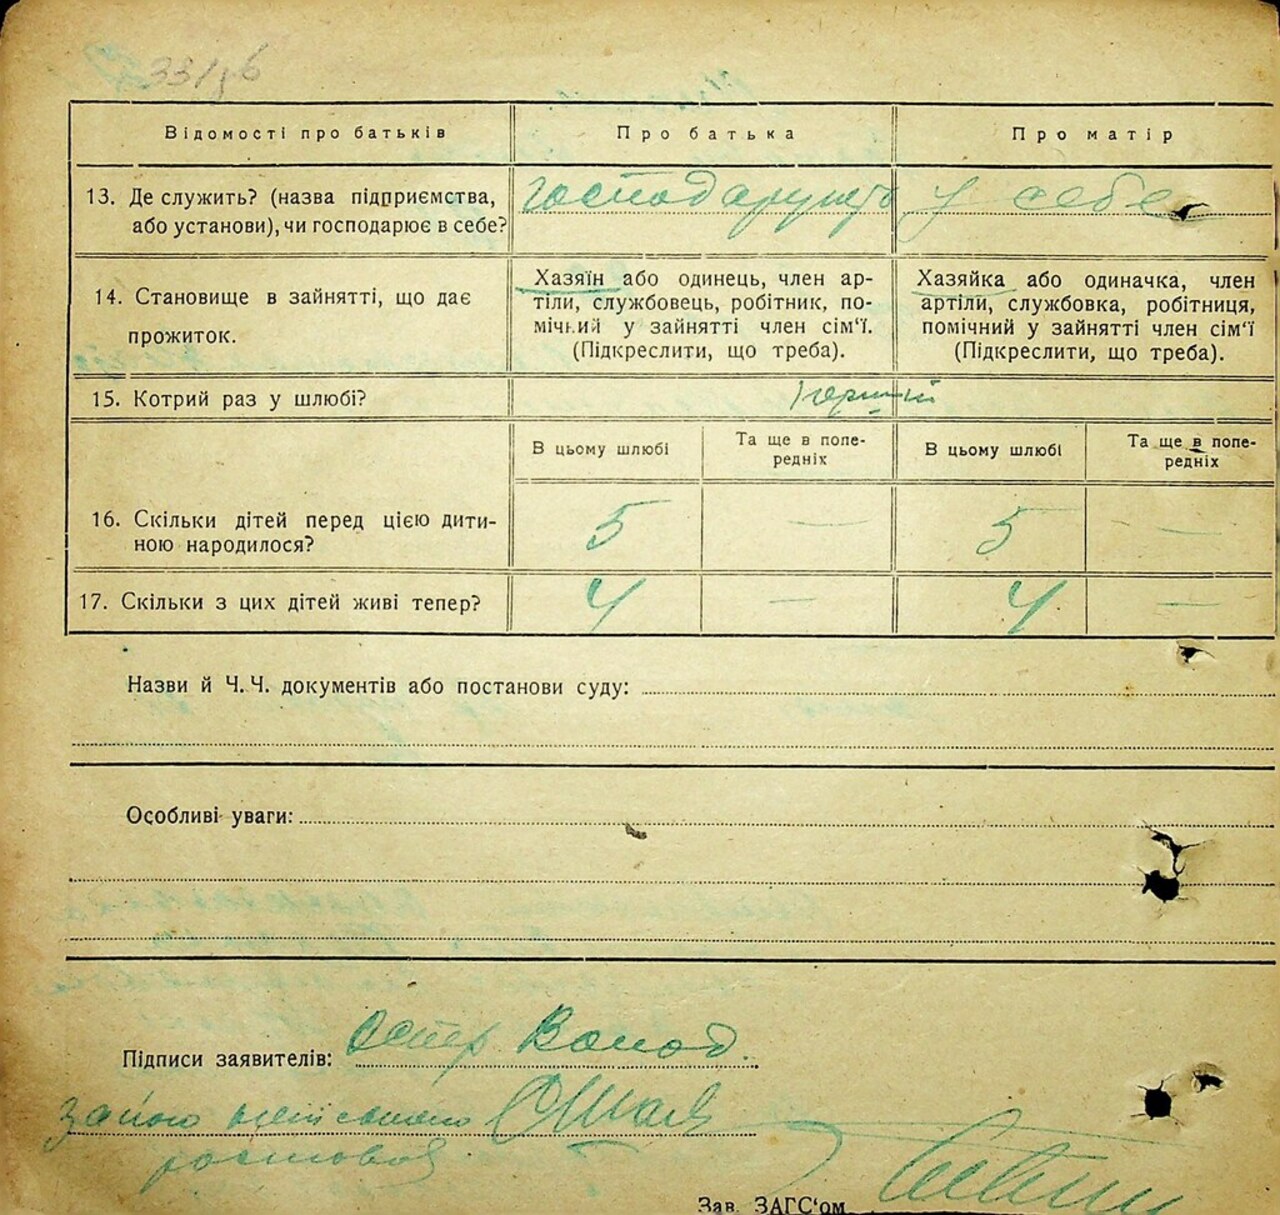 33/56
Відомості про батьків
Про батька
Про матір
13. Де служить? (назва підприємства,
або установи), чи господарює в себе?
господарують у себе
14. Становище в зайнятті, що дає
прожиток.
Хазяїн або одинець, член ар-
тіли, службовець, робітник, по-
мічний у зайнятті член сім‘ї.
(Підкреслити, що треба).
Хазяйка або одиначка, член
артіли, службовка, робітниця,
помічний у зайнятті член сім‘ї
(Підкреслити, що треба).
15. Котрий раз у шлюбі?
перший
В цьому шлюбі
Та ще в попе-
редніх
В цьому шлюбі
Та ще в попе-
редніх
16. Скільки дітей перед цією дити-
ною народилося?
5 — 5 —
17. Скільки з цих дітей живі тепер?
4 — 4 —
Назви й Ч. Ч. документів або постанови суду:
Особливі уваги:
Підписи заявителів:
Зав. ЗАГС‘ом